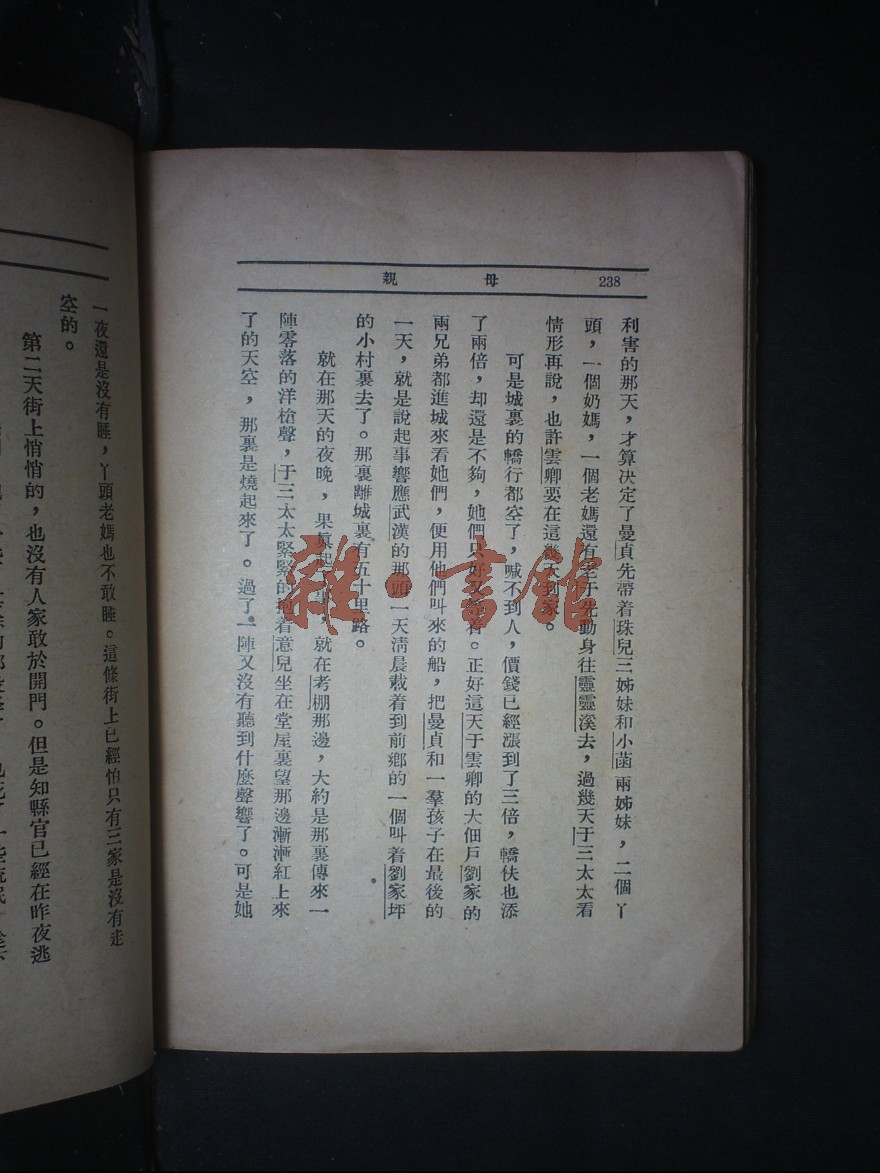 238 母親
利害的那天，才算決定了曼貞先帶着珠兒三姊妹和小菡兩姊妹，二個丫
頭，一個奶媽，一個老媽還有老于先動身往靈靈溪去，過幾天于三太太看
情形再說，也許雲卿要在這幾天到家。
可是城裏的轎行都空了，喊不到人，價錢已經漲到了三倍，轎伕也添
了兩倍，却還是不夠，她們只好又着。正好這天于雲卿的大佃戶劉家的
兩兄弟都進城來看她們，便用他們叫來的船，把曼貞和一羣孩子在最後的
一天，就是說起事響應武漢的那頭一天淸晨載着到前鄉的一個叫着劉家坪
的小村裏去了。那裏離城裏有五十里路。
就在那天的夜晚，果眞起了事，就在考棚那邊，大約是那裏傳來一
陣零落的洋槍聲，于三太太緊緊的抱着意兒坐在堂屋裏望那邊漸漸紅上來
了的天空，那裏是燒起來了。過了一陣又沒有聽到什麼聲響了。可是她
一夜還是沒有睡，丫頭老媽也不敢睡。這條街上已經怕只有三家是沒有走
空的。
第二天街上悄悄的，也沒有人家敢於開門。但是知縣官已經在昨夜逃
雜·書館